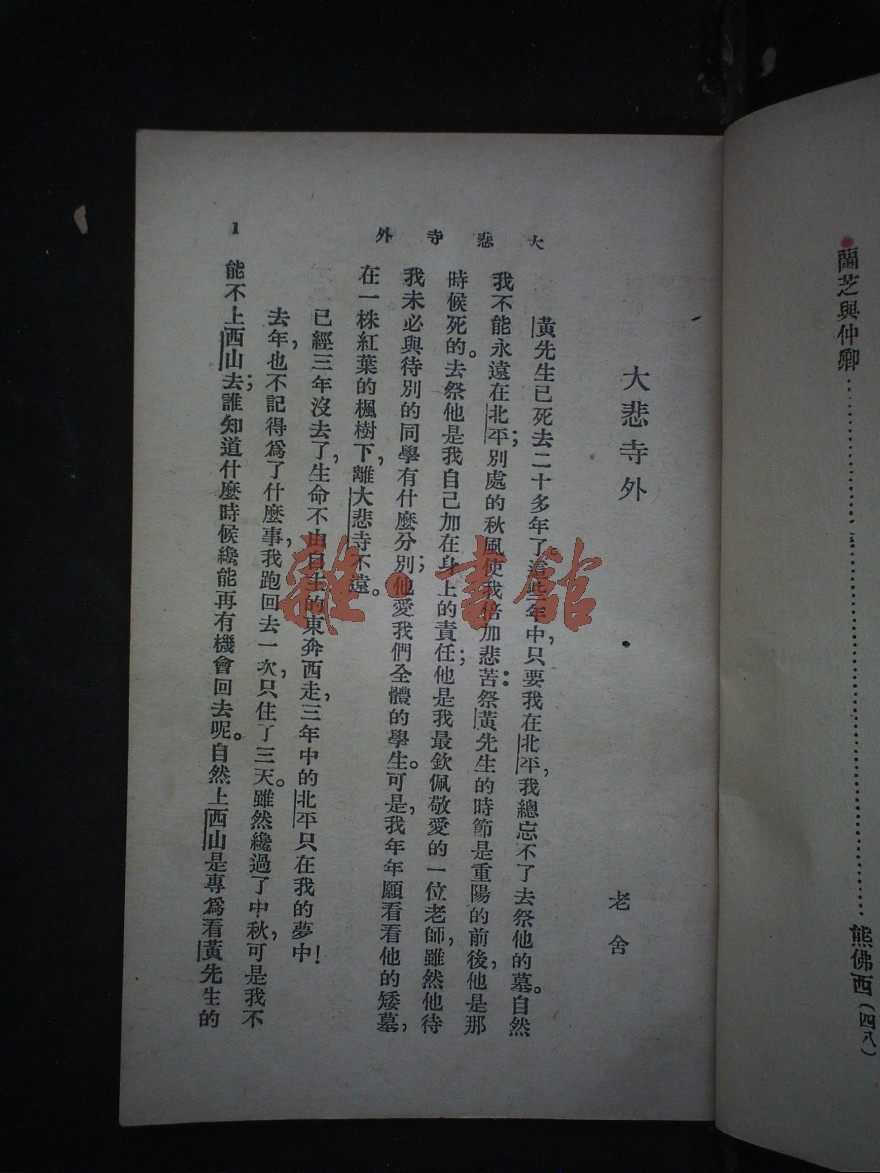 蘭芝與仲卿……熊佛西(四八)
大悲寺外
大悲寺外
老舍
黃先生已死去二十多年了。這些年中,只要我在北平,我總忘不了去祭他的墓。自然
我不能永遠在北平;別處的秋風使我倍加悲苦:祭黃先生的時節是重陽的前後,他是那
時候死的。去祭他是我自己加在身上的責任;他是我最欽佩敬愛的一位老師,雖然他待
我未必與待別的同學有什麼分別;他愛我們全體的學生。可是,我年年願看看他的矮墓,
在一株紅葉的楓樹下,離大悲寺不遠。
已經三年沒去了,生命不由自主的東奔西走,三年中的北平只在我的夢中!
去年,也不記得爲了什麼事,我跑回去一次,只住了三天。雖然纔過了中秋,可是我不
能不上西山去;誰知道什麼時候纔能再有機會回去呢。自然上西山是專爲看黃先生的
1
雜·書館